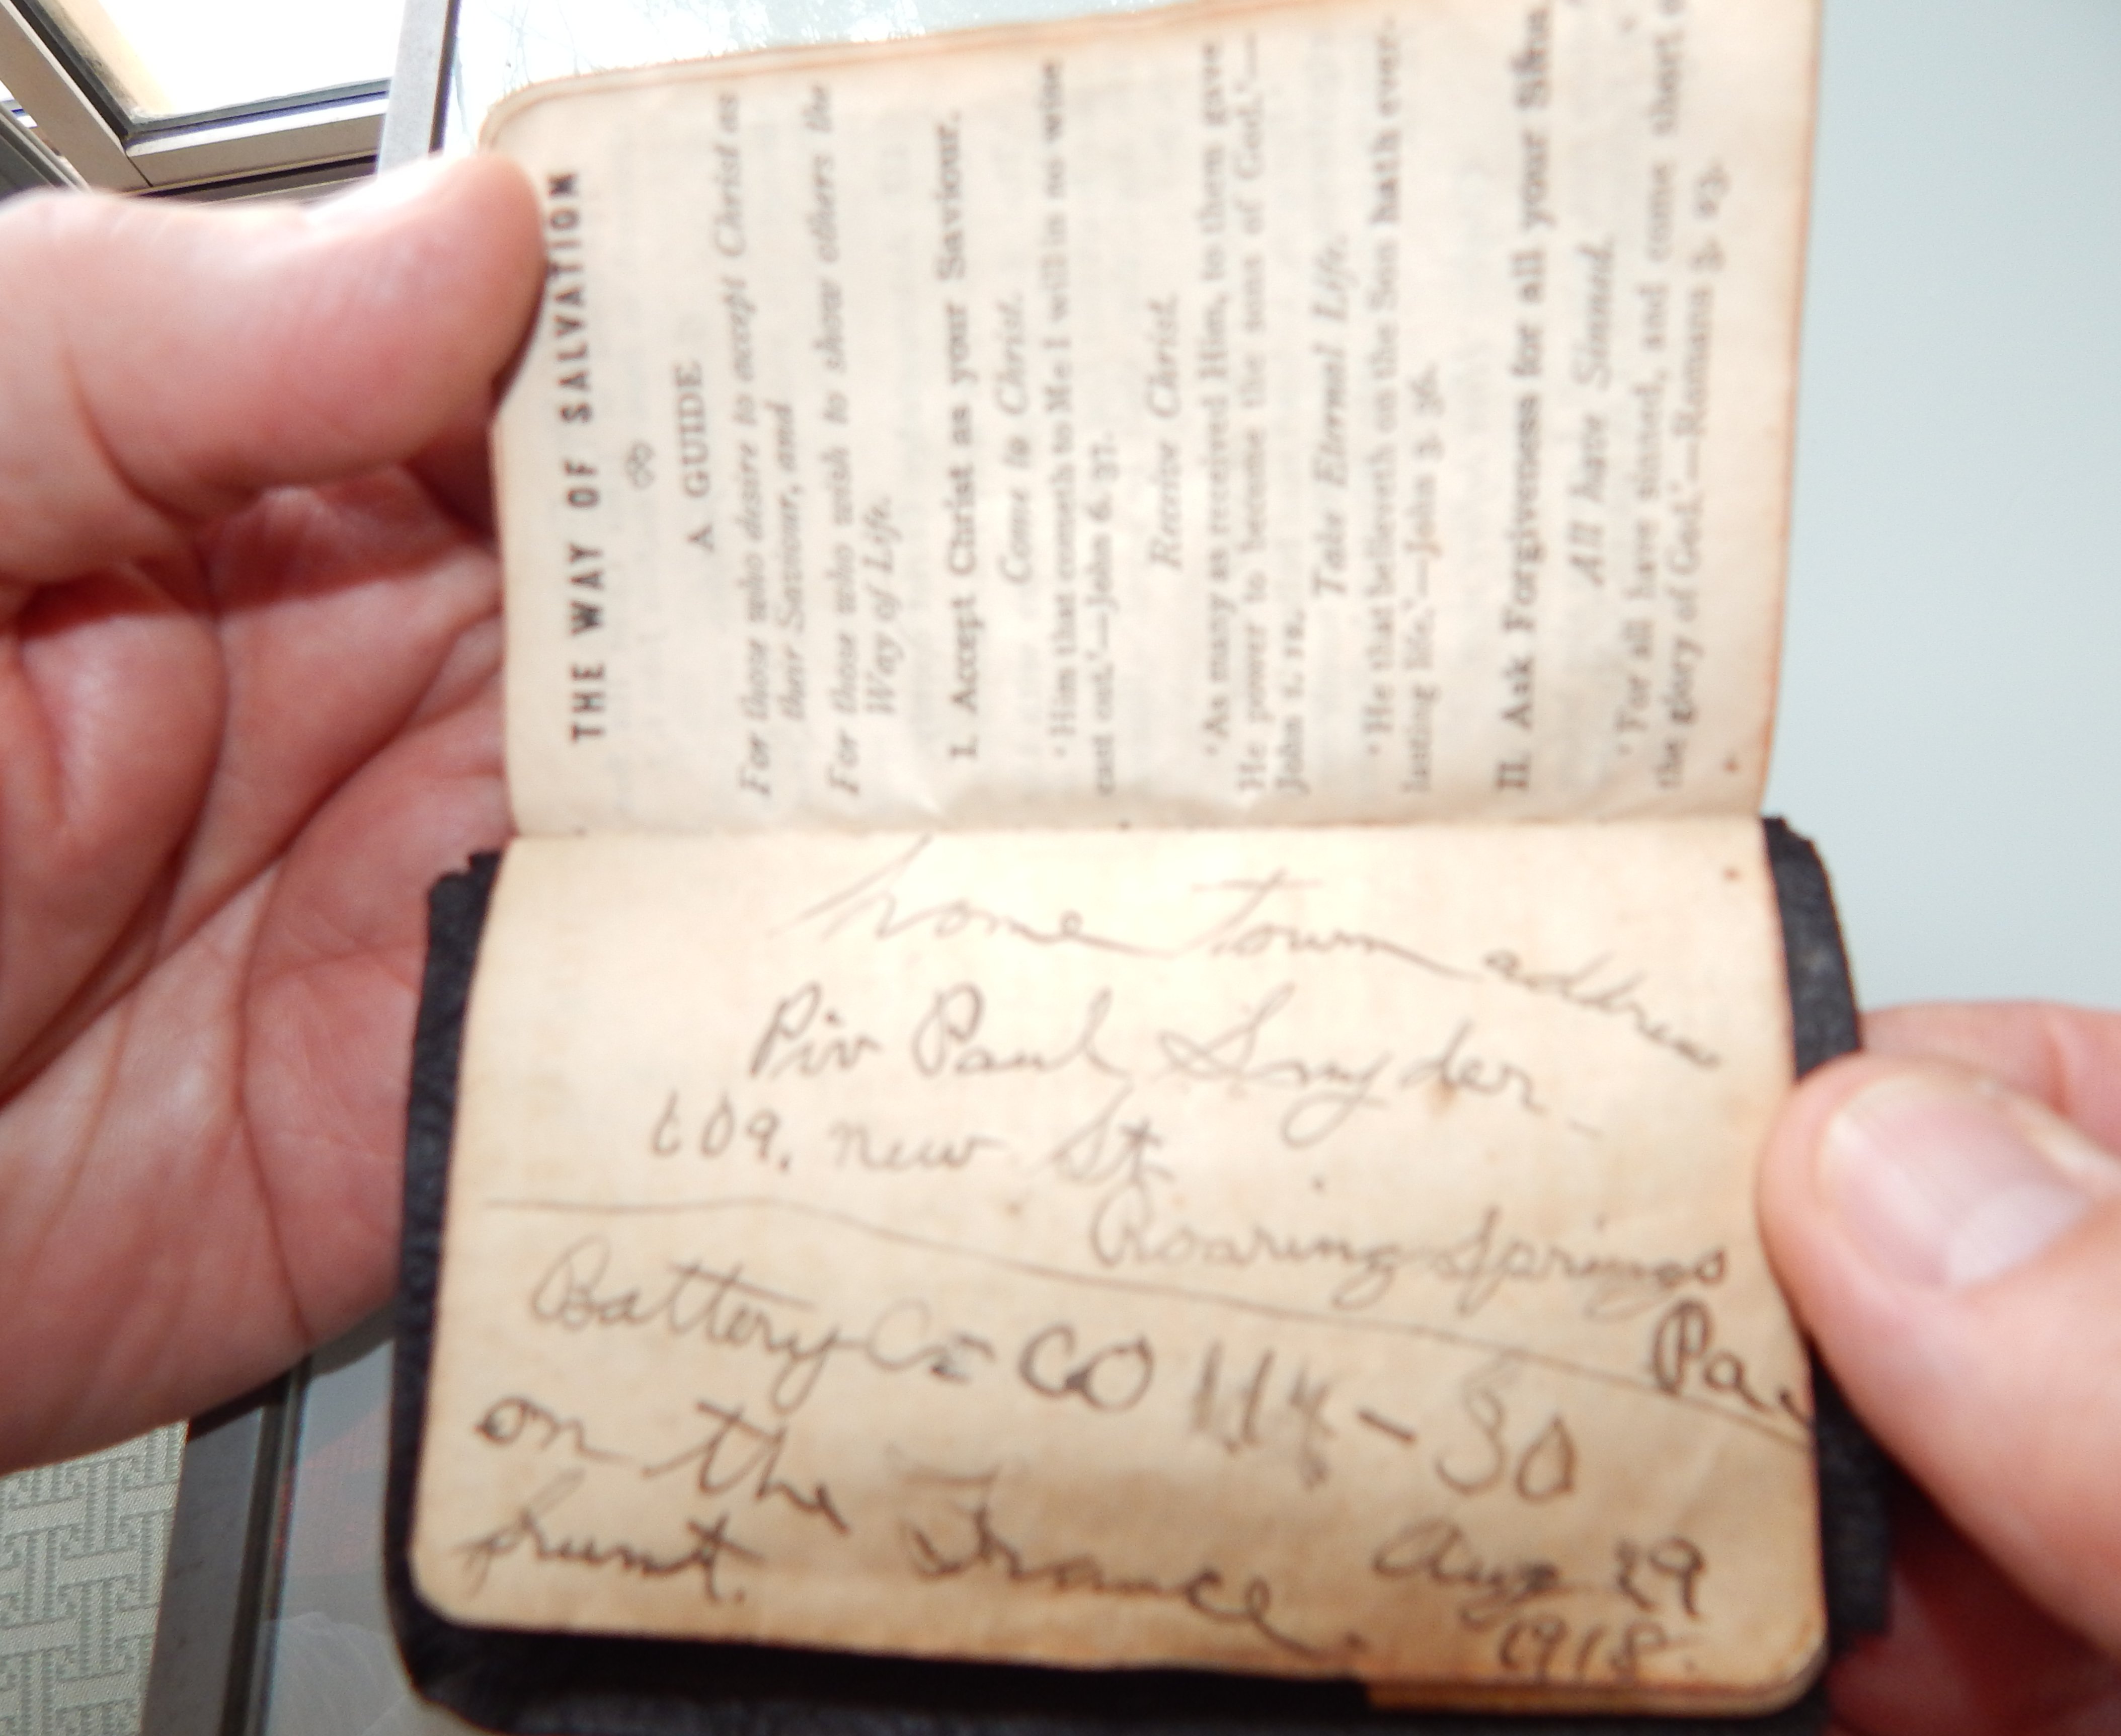 THE WAY OF SALVATION
A GUIDE
For those who desire to accept Christ as
their Saviour, and
For those who wish to show others the
Way of Life.
I. Accept Christ as your Saviour.
Come to Christ.
'Him that cometh to Me I will in no wise
cast out.'—John 6. 37.
Receive Christ.
'As many as received Him, to them gave
He power to become the sons of God.'—
John 1. 12.
Take Eternal Life.
'He that believeth on the Son hath ever-
lasting life.'—John 3. 36.
II. Ask Forgiveness for all your Sins.
All have Sinned.
'For all have sinned, and come short
the glory of God.'—Romans 3. 23.
home town address
Piv Paul Snyder
609, New St
Roaring Springs
Pa.
Battery CO 114 - 30
on the France. Aug 29
frunt. 1918.